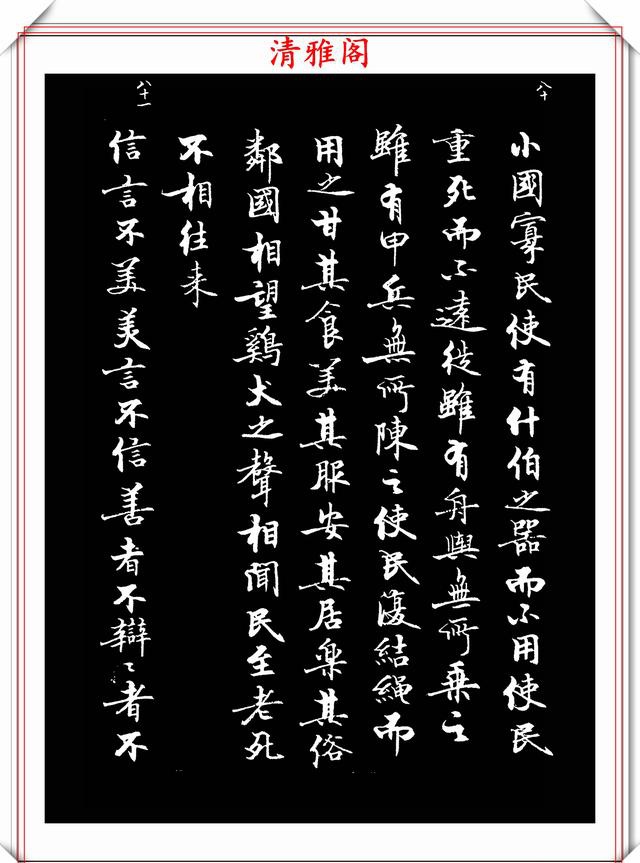 清雅阁
八十
小國寡民使有什伯之器而不用使民
重死而不遠徙雖有舟輿無所乘之
雖有甲兵無所陳之使民復結繩而
用之甘其食美其服安其居樂其俗
鄰國相望雞犬之聲相聞民至老死
不相往来
八十一
信言不美美言不信善者不辯〻者不